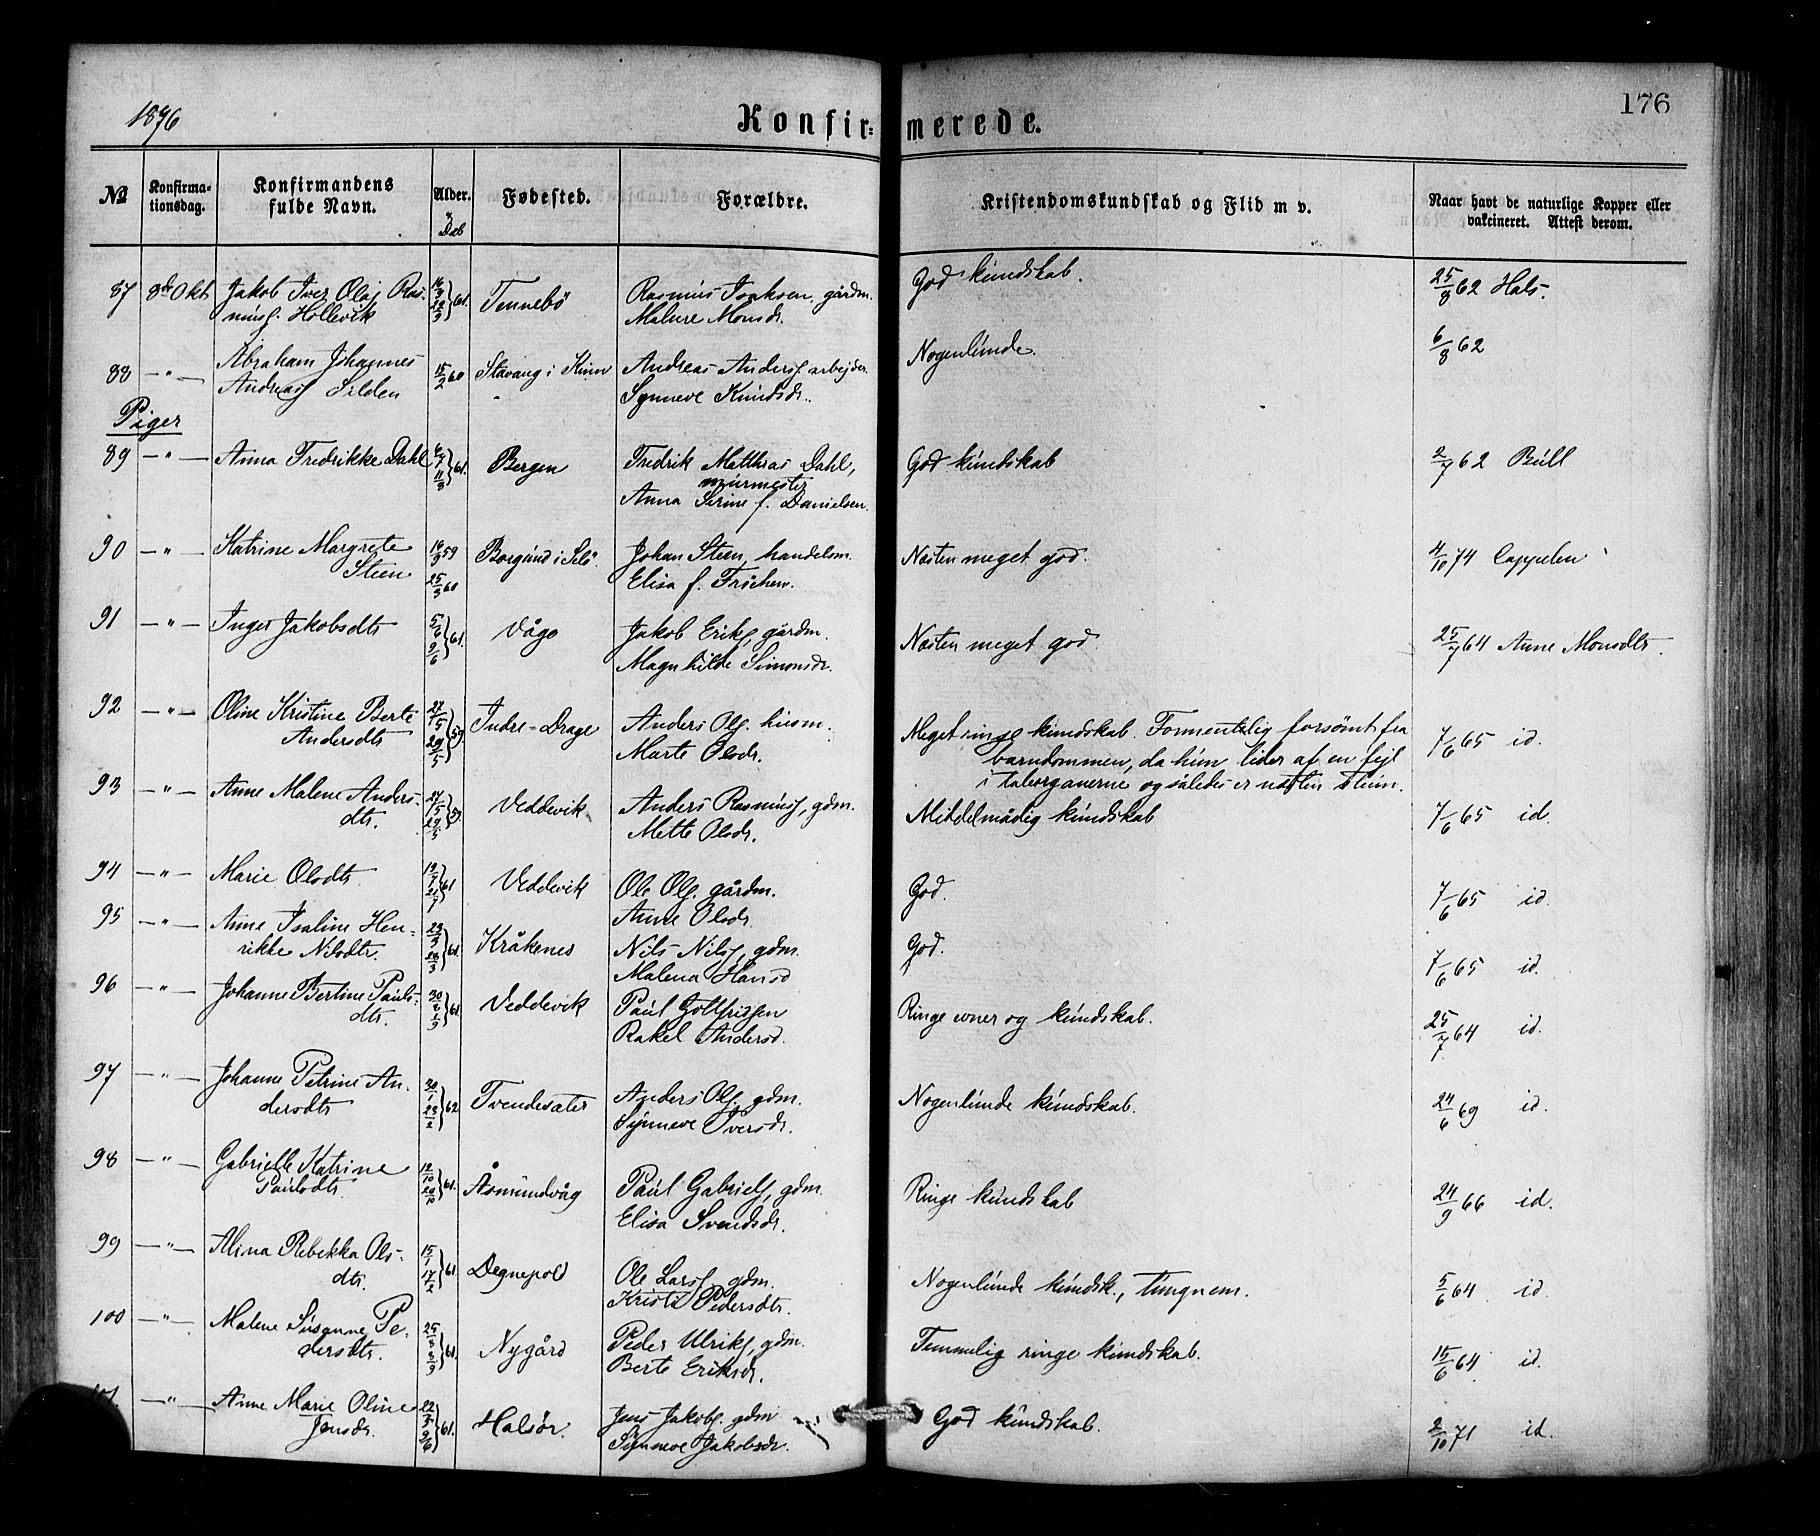 1876
Konfir=merede.
176
No
Konfirma=
tionsdag.
Konfirmandens
fulde Navn.
Alder.
Dåb
Fødested.
Forældre.
Kristendomskundskab og Flid m v.
Naar havt de naturlige Kopper eller
vakcineret. Attest derom.
87 8de Okt Jakob Iver Olaj Ras- 61. Tennebø Rasmus Isaksen, gårdm. God kundskab. 25/8 62 Hals.
musf. Hollevik Malene Monsdr.
88 —"— Abraham Johannes 15/2 60 Stavang i Kinn Andreas Andersf. arbejder Nogenlunde. 6/8 62
Andreasf. Selden Synneve Knudsdr.
Piger
89 —"— Anna Fredrikke Dahl 61. Bergen Fredrik Matthias Dahl, God kundskab 2/7 62 Bull
murmester
Anna Serine f. Danielsen.
90 —"— Katrine Margrete 16/9 59 Borgund i Selø. Johan Steen, handelsm. Næsten meget god. 4/10 74 Cappelen
Steen 25/3 60 Elisa f. Frichen.
91 —"— Inger Jakobsdtr 5/6 9/6 61. Vågø Jakob Eriks. gårdm. Næsten meget god. 25/7 64 Anne Monsdtr.
Magnhilde Simonsdr.
92 —"— Oline Kristine Berte 59. Indre-Drage Anders Ols. husm. Meget ringe kundskab. Formentlig forsømt fra 7/6 65 id.
Andersdtr 29/5 Marte Olsdr. barndommen, da hun lider af en fejl
i taleorganerne og således er næsten stum.
93 —"— Anne Malene Anders- 27/5 29/5 59. Veddevik Anders Rasmusf, gdm. Middelmådig kundskab 7/6 65 id.
dtr. Mette Olsdr.
94 —"— Marie Olsdtr 19/7 21/7 61 Veddevik Ole Ols. gårdm. God. 7/6 65 id.
Anne Olsdr.
95 —"— Anne Isaline Hen- 61. Kråkenes Nils Nilsf, gdm. God. 7/6 65 id.
rikke Nilsdtr. Malena Hansd
96 —"— Johanne Bertine Pauls- 30/8 1/9 61 Veddevik Paul Gottfrissen Ringe evner og kundskab. 25/7 64 id.
dtr. Rakel Andersd.
97 —"— Johanne Petrine An- 30/1 23/2 62 Tvendesæter Anders Ols. gdm. Nogenlunde kundskab. 24/6 69 id.
dersdtr Synneve Iversdr.
98 —"— Gabrielle Katrine 12/10 20/10 61. Åsmundvåg Paul Gabrielf, gdm. Ringe kundskab 24/9 66 id.
Paulsdtr. Elisa Svendsdr.
99 —"— Alina Rebekka Ols- 15/1 17/2 61. Degnepold Ole Larsf, gdm. Nogenlunde kundsk., tungnem. 5/6 64 id.
dtr. Kristi Pedersdtr.
100 —"— Malene Susanne Pe- 61. Nygård Peder Ulriks, gdm. Temmelig ringe kundskab. 15/6 64 id.
dersdtr. Berte Eriksdr.
101. —"— Anne Marie Oline 61. Halsør. Jens Jakobs. gdm God kundskab. 2/10 71 id.
Jensdr. 2/6 Synneve Jakobsdr.